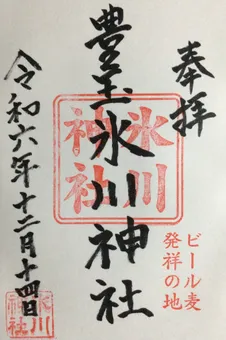 奉拝
豊玉氷川神社
氷川
神社
ビール麦
発祥の地
令和六年十二月十四日
氷川
神社